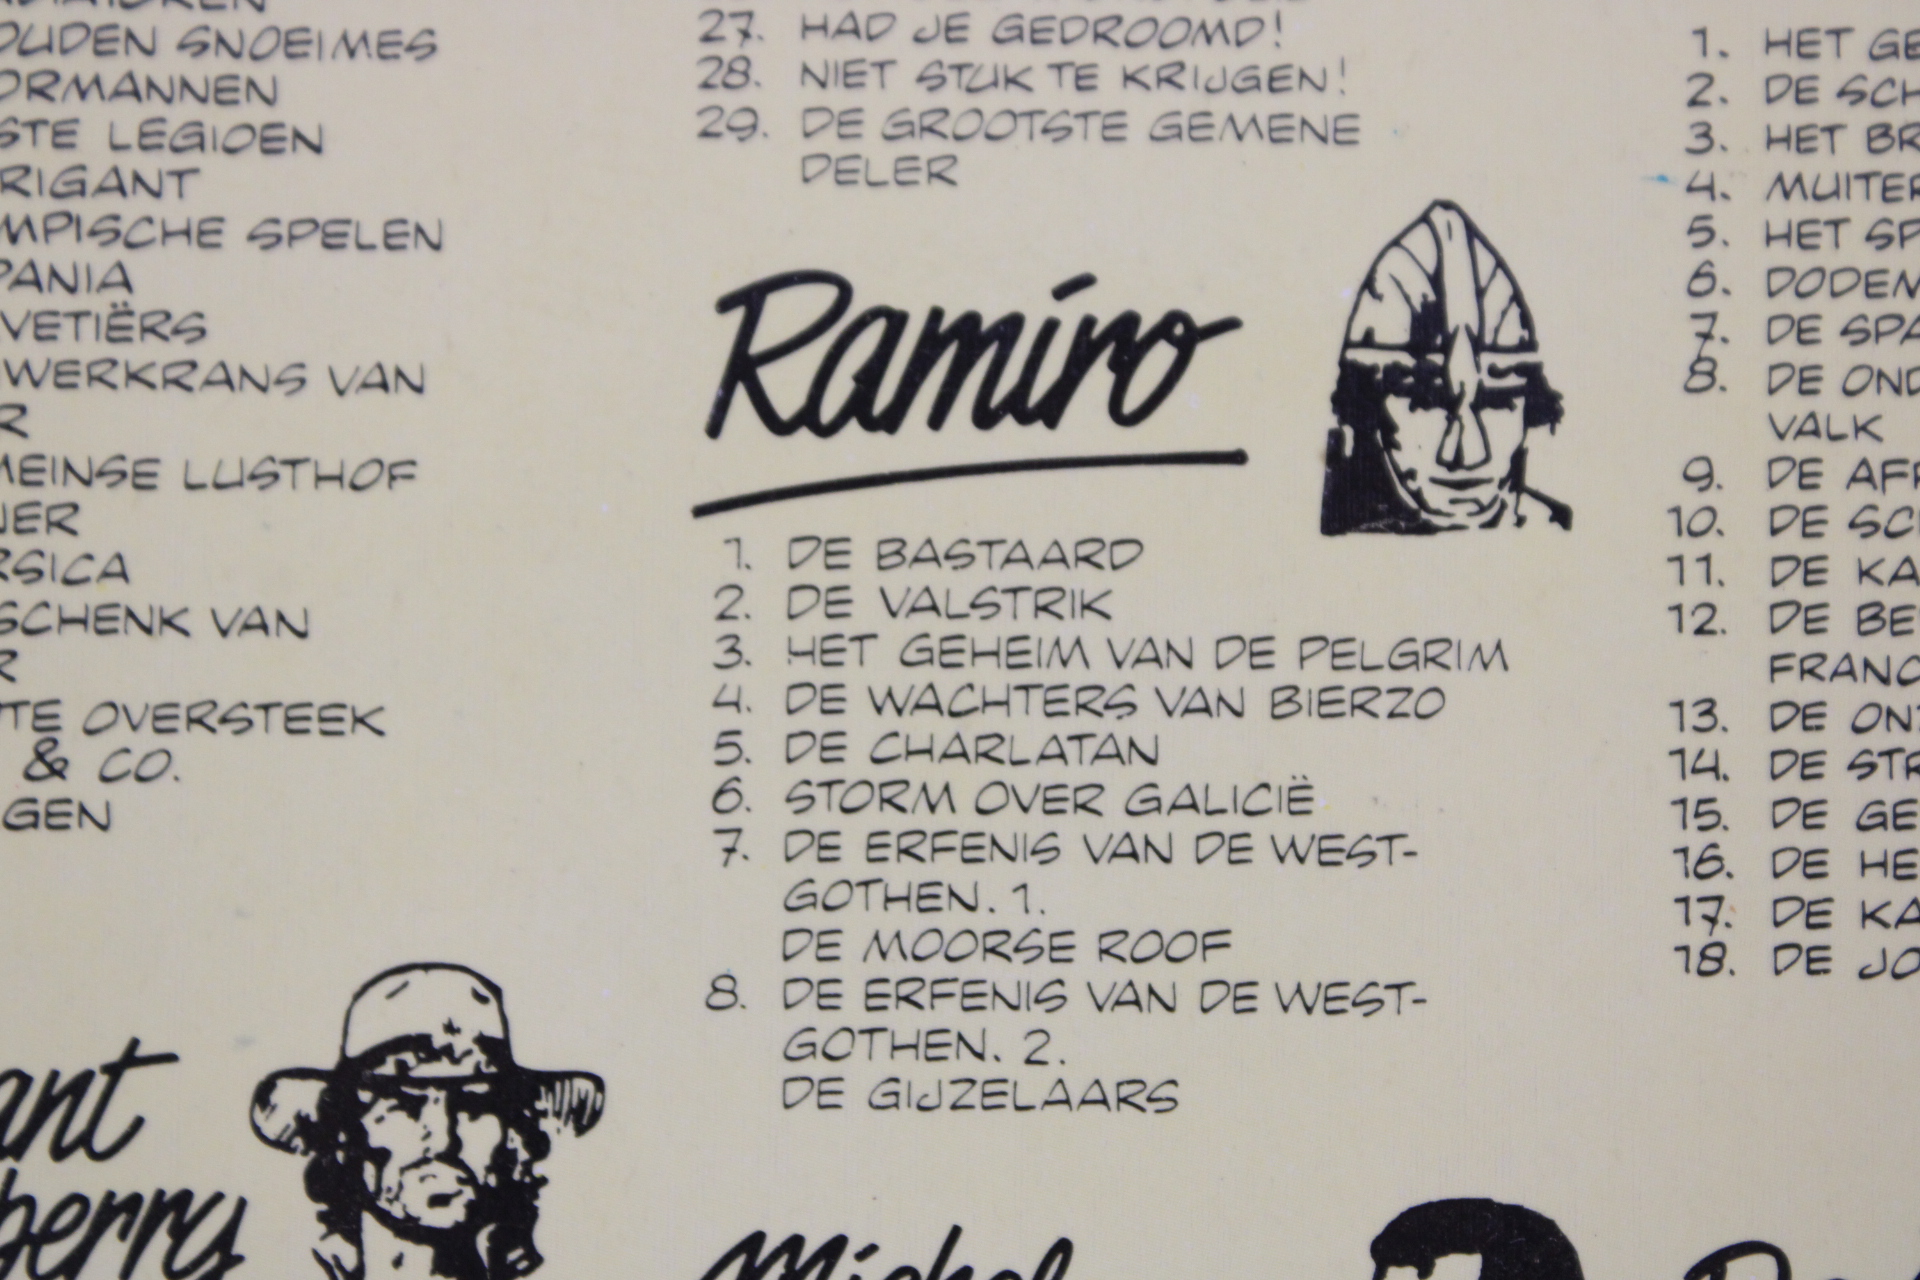 OUDEN SNOEIMES
ORMANNEN
STE LEGIOEN
RIGANT
MPISCHE SPELEN
PANIA
VETIËRS
WERKRANS VAN
R
MEINSE LUSTHOF
NER
RSICA
SCHENK VAN
R
TE OVERSTEEK
& CO.
GEN
ant
berry
27. HAD JE GEDROOMD!
28. NIET STUK TE KRIJGEN!
29. DE GROOTSTE GEMENE
DELER
Ramiro
1. DE BASTAARD
2. DE VALSTRIK
3. HET GEHEIM VAN DE PELGRIM
4. DE WACHTERS VAN BIERZO
5. DE CHARLATAN
6. STORM OVER GALICIË
7. DE ERFENIS VAN DE WEST-
GOTHEN. 1.
DE MOORSE ROOF
8. DE ERFENIS VAN DE WEST-
GOTHEN. 2.
DE GIJZELAARS
Michel
1. HET GE
2. DE SCH
3. HET BR
4. MUITER
5. HET SP
6. DODEM
7. DE SPA
8. DE OND
VALK
9. DE AFR
10. DE SC
11. DE KA
12. DE BE
FRANC
13. DE ONT
14. DE STR
15. DE GE
16. DE HE
17. DE KA
18. DE JO